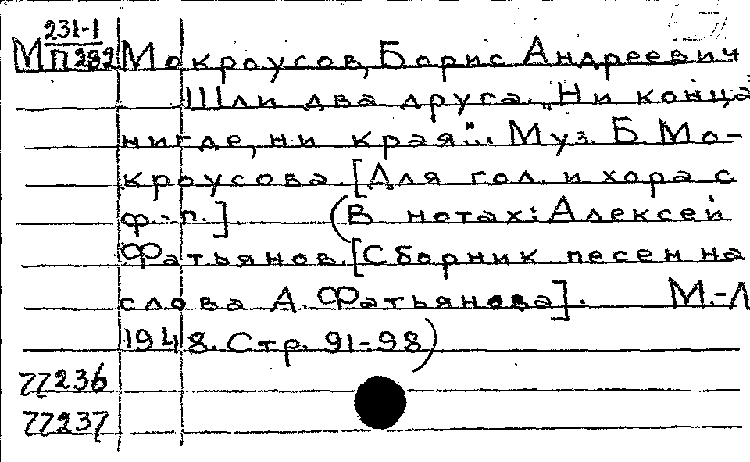 231-1
М П 282 Мокроусов, Борис Андреевич
Шли два друга. "Ни конца
нигде, ни края"... Муз. Б. Мо-
кроусова. [Для гол. и хора с
ф.-п.] (В нотах: Алексей
Фатьянов. [Сборник песен на
слова А. Фатьянова]. М.-Л
1948. Стр. 91-98)
77236
77237